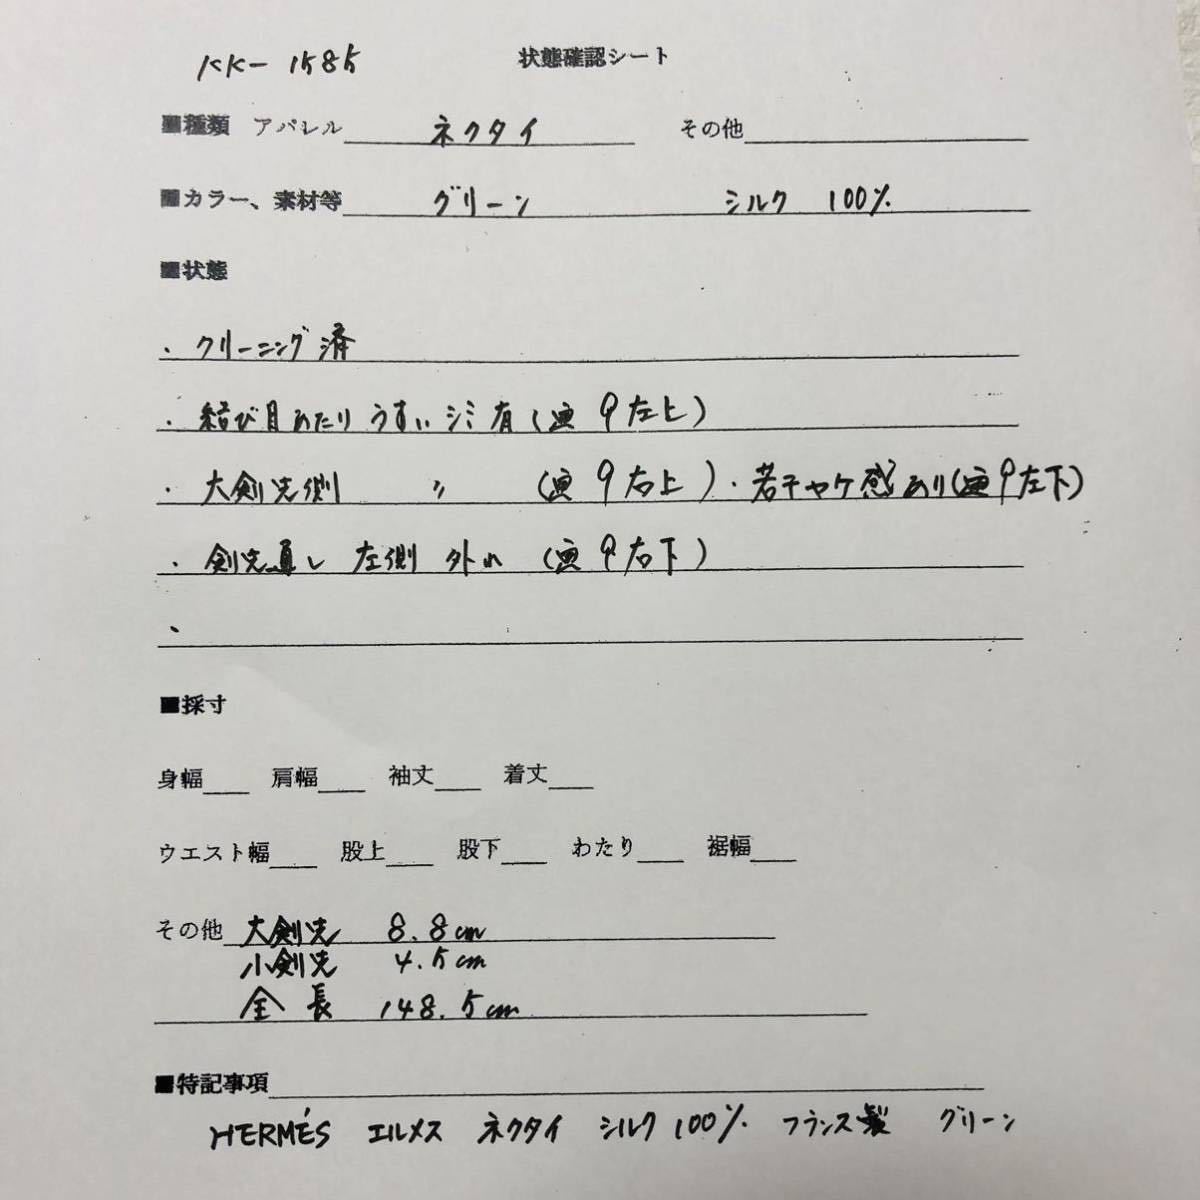 KK-1585 状態確認シート
■種類 アパレル ネクタイ その他
■カラー、素材等 グリーン シルク 100%
■状態
・クリーニング済
・結び目あたり うすいシミ有(画9左上)
・大剣先側 〃 (画9右上)・若干ヤケ感あり(画9左下)
・剣先直し 左側 外れ (画9右下)
・
■採寸
身幅 肩幅 袖丈 着丈
ウエスト幅 股上 股下 わたり 裾幅
その他 大剣先 8.8cm
小剣先 4.5cm
全長 148.5cm
■特記事項
HERMÉS エルメス ネクタイ シルク100% フランス製 グリーン